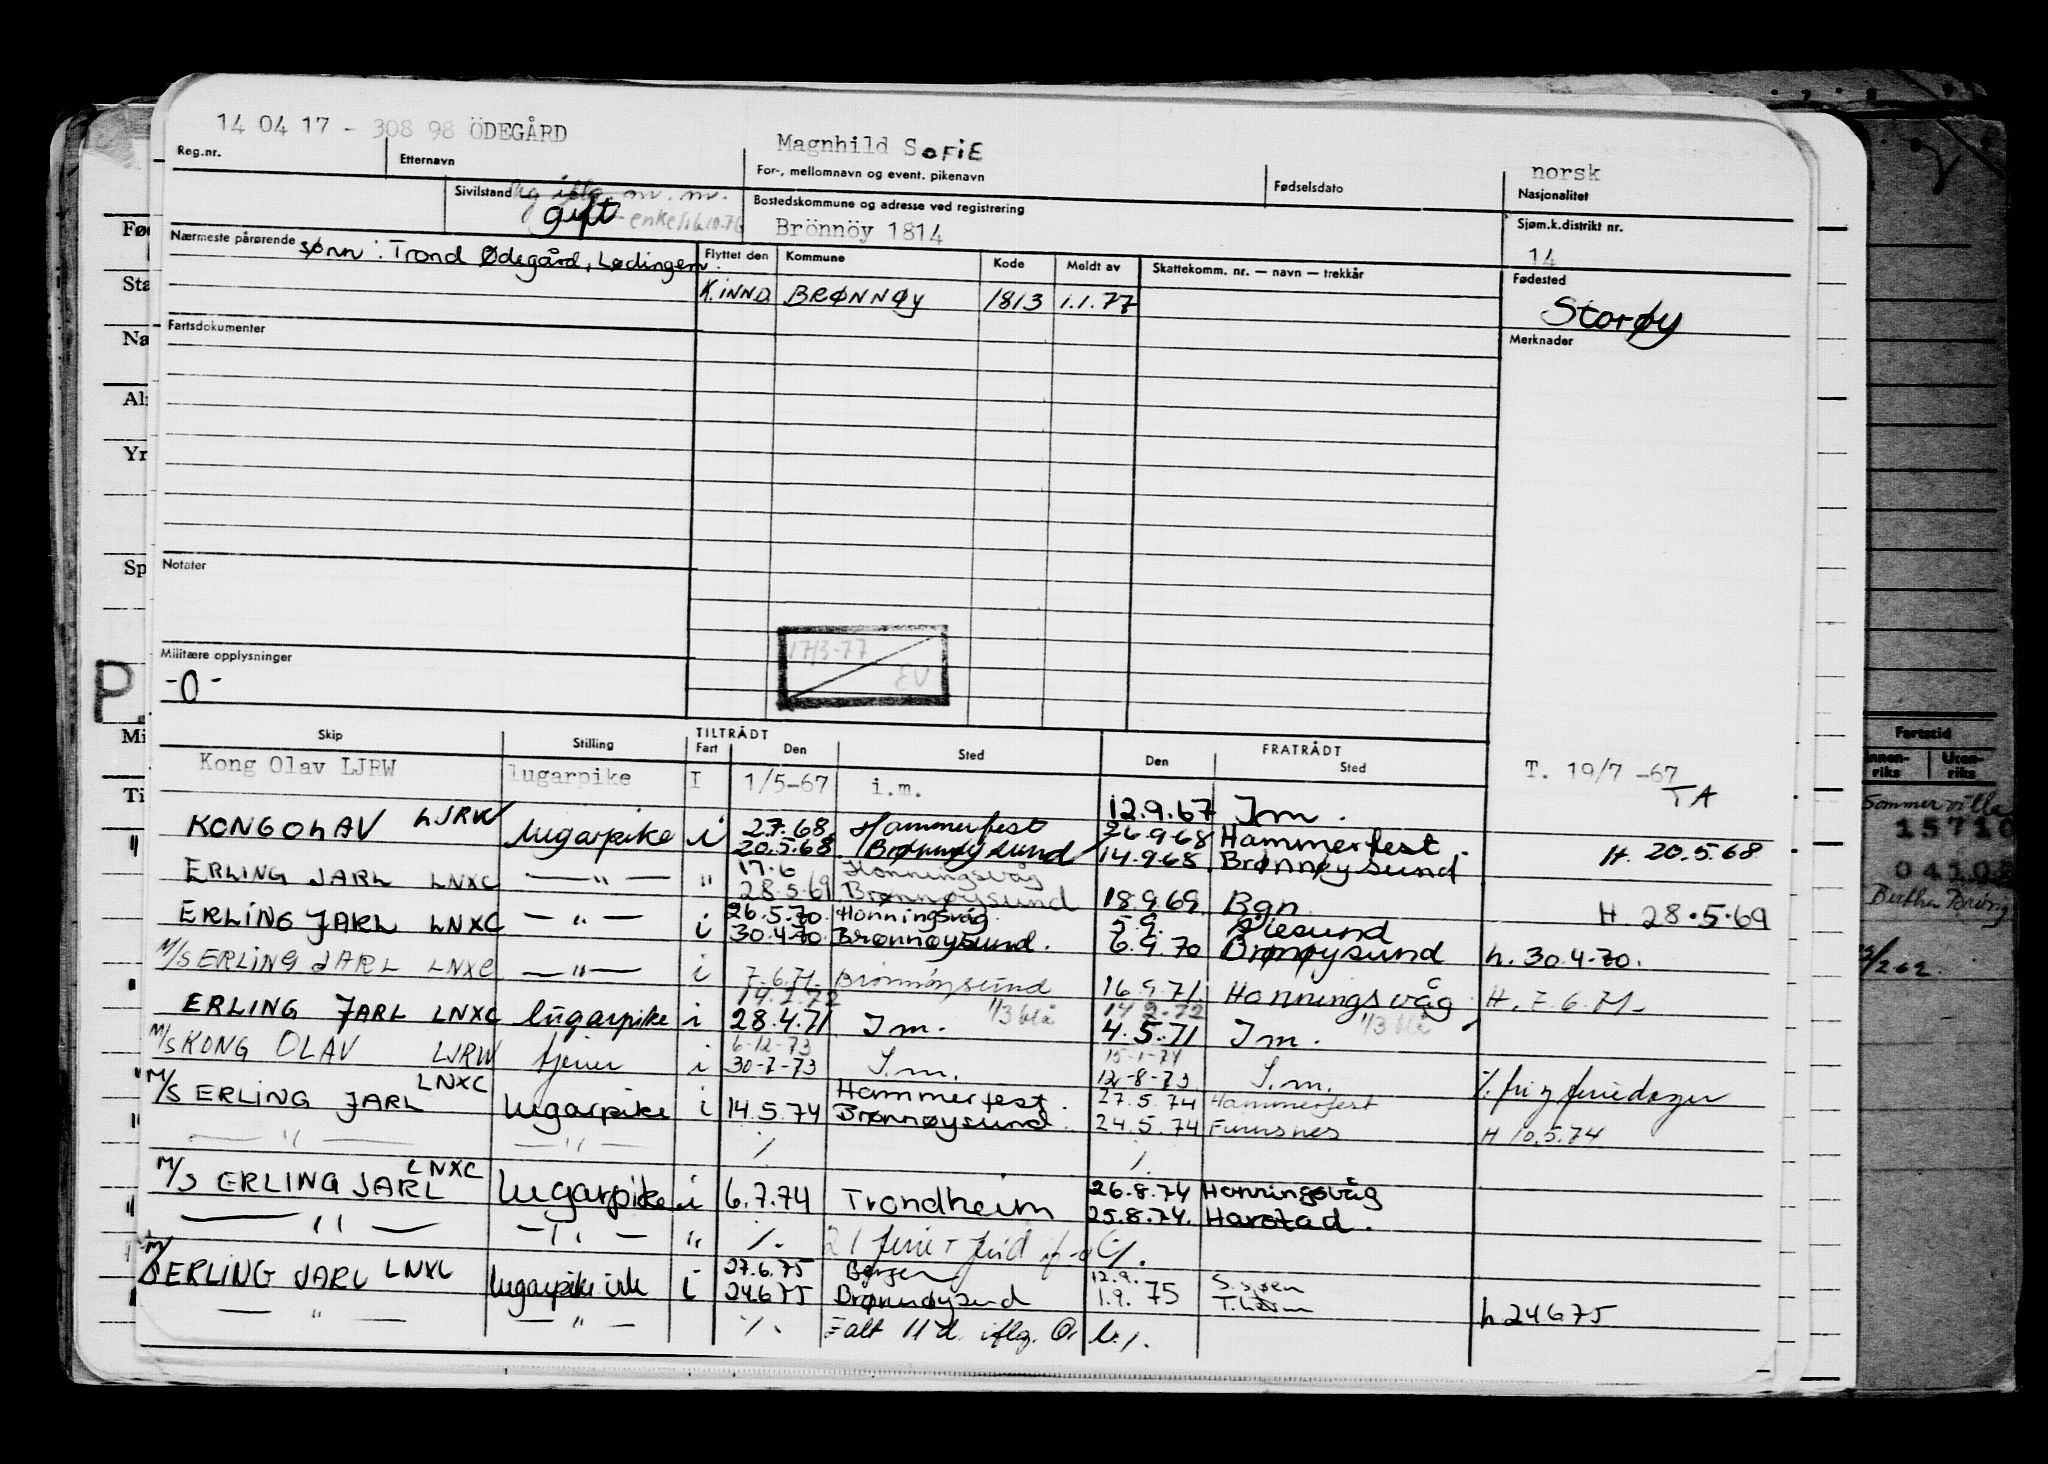 14 04 17 - 308 98 ÖDEGÅRD Magnhild SOFIE norsk
Reg.nr. Etternavn For-, mellomnavn og event. pikenavn Fødselsdato Nasjonalitet
Sivilstand iflg. m.m. gift - enke Bostedskommune og adresse ved registrering Sjøm.k.distrikt nr.
Brönnöy 1814 14
Nærmeste pårørende sønn: Trond Ødegård, Lødingen. Flyttet den Kommune Kode Meldt av Skattekomm. nr. — navn — trekkår Fødested
K.INND. BRØNNØY 1813 1.1.77 Storøy
Fartsdokumenter Merknader
Notater
17/3-77
EU
Militære opplysninger
-0-
Skip Stilling TILTRÅDT Fart Den Sted FRATRÅDT Den Sted
Kong Olav LJRW lugarpike I 1/5-67 i.m. 12.9.67 Im. T. 19/7 -67 TA
KONG OLAV LJRW lugarpike i 2.7.68 Hammerfest 26.9.68 Hammerfest.
20.5.68 Brønnøysund 14.9.68 Brønnøysund H. 20.5.68
ERLING JARL LNXC —"— " 17.6 Honningsvåg
28.5.69 Brønnøysund 18.9.69 Bgn H 28.5.69
ERLING JARL LNXC —"— i 26.5.70. Honningsvåg 5.9. Ålesund
30.4.70. Brønnøysund. 6.9.70 Brønnøysund h. 30.4.70.
M/S ERLING JARL LNXC —"— i 7.6.71. Brønnøysund 16.9.71. Honningsvåg H. 7.6.71.
ERLING JARL LNXC lugarpike i 28.4.71 Im. 1/3 blå 4.5.71 Im. 1/3 blå
M/S KONG OLAV LJRW i 6-12-73
30-7-73 I.m. 15-1-74
12-8-73 I.m.
M/S ERLING JARL LNXC lugarpike i 14.5.74 Hammerfest. 27.5.74 Hammerfest
Brønnøysund. 24.5.74 H 10.5.74
—"— —"— ./. ./.
M/S ERLING JARL LNXC lugarpike i 6.7.74 Trondheim 26.8.74 Honningsvåg
25.8.74. Harstad.
—"— —"— " ./. ./.
M/S ERLING JARL LNXC lugarpike i 27.6.75 Bergen 12.9.
24675 Brønnøysund 1.9. 75 T.heim h 24675
—"— —"— ./. alt 11 d. iflg.
Fø
Sta
Na
Al
Yr
Sp
P
Mi
Ti
Fartstid
Innen-riks Uten-riks
Sommer villa